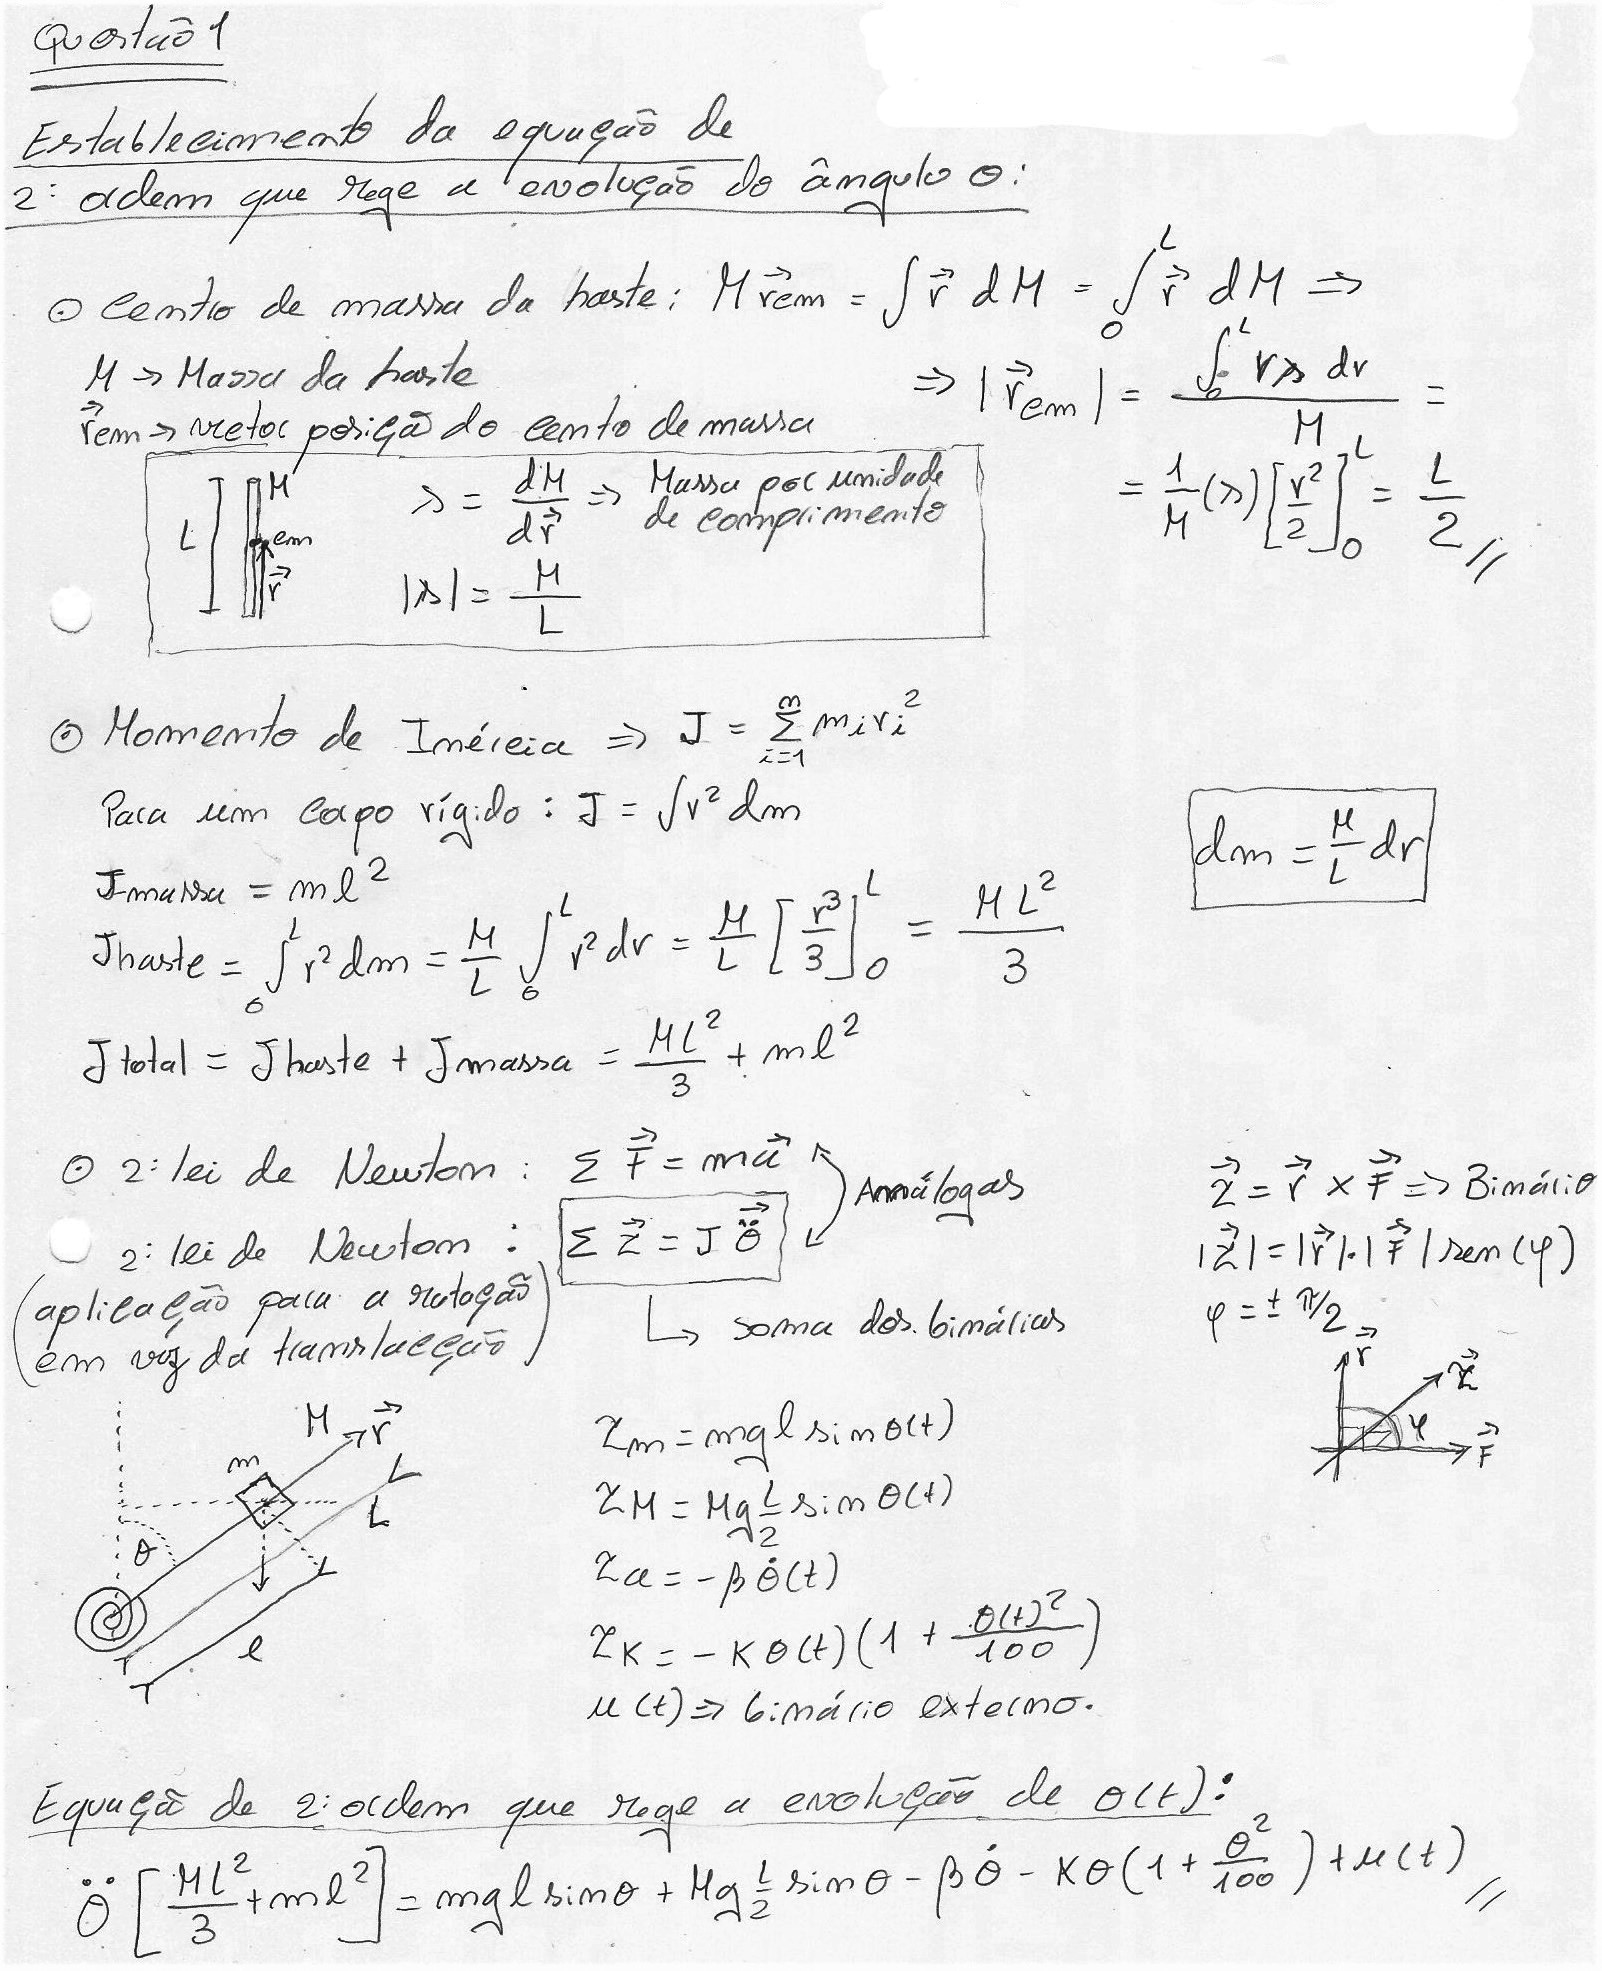 Questão 1
Establecimento da equação de
2ª ordem que rege a evolução do ângulo θ:
⊙ Centro de massa da haste: M r⃗cm = ∫ r⃗ dM = ∫₀ᴸ r⃗ dM ⇒
M → Massa da haste
⇒ |r⃗cm| = (∫₀ᴸ rλ dr)/M =
r⃗cm → vetor posição do centro de massa
= 1/M (λ) [r²/2]₀ᴸ = L/2 //
L M cm r⃗
λ = dM/dr⃗ ⇒ Massa por unidade
de comprimento
|λ| = M/L
⊙ Momento de Inércia ⇒ J = Σᵢ₌₁ⁿ mᵢrᵢ²
Para um corpo rígido: J = ∫r² dm
dm = M/L dr
Jmassa = ml²
Jhaste = ∫₀ᴸ r² dm = M/L ∫₀ᴸ r² dr = M/L [r³/3]₀ᴸ = ML²/3
Jtotal = Jhaste + Jmassa = ML²/3 + ml²
⊙ 2ª lei de Newton: Σ F⃗ = ma⃗
Annálogas
2ª lei de Newton: Σ τ⃗ = J θ̈⃗
(aplicação para a rotação
em vez da translacção)
↳ soma dos binários
τ⃗ = r⃗ × F⃗ ⇒ Binário
|τ⃗| = |r⃗|.|F⃗| sen(φ)
φ = ± π/2
r⃗ τ⃗ φ F⃗
M r⃗
m
L
θ
l
τm = mgl sinθ(t)
τM = Mg L/2 sinθ(t)
τa = -βθ̇(t)
τK = -Kθ(t)(1 + θ(t)²/100)
u(t) ⇒ binário externo.
Equação de 2ª ordem que rege a evolução de θ(t):
θ̈ [ML²/3 + ml²] = mgl sinθ + Mg L/2 sinθ - βθ̇ - Kθ(1 + θ²/100) + u(t) //